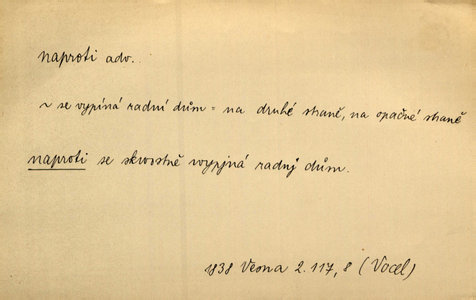 naproti adv.
~ se vypíná radní dům = na druhé straně, na opačné straně
naproti se skwostně wypjná radnj dům.
1838 Vesna 2.117,8 (Vocel)